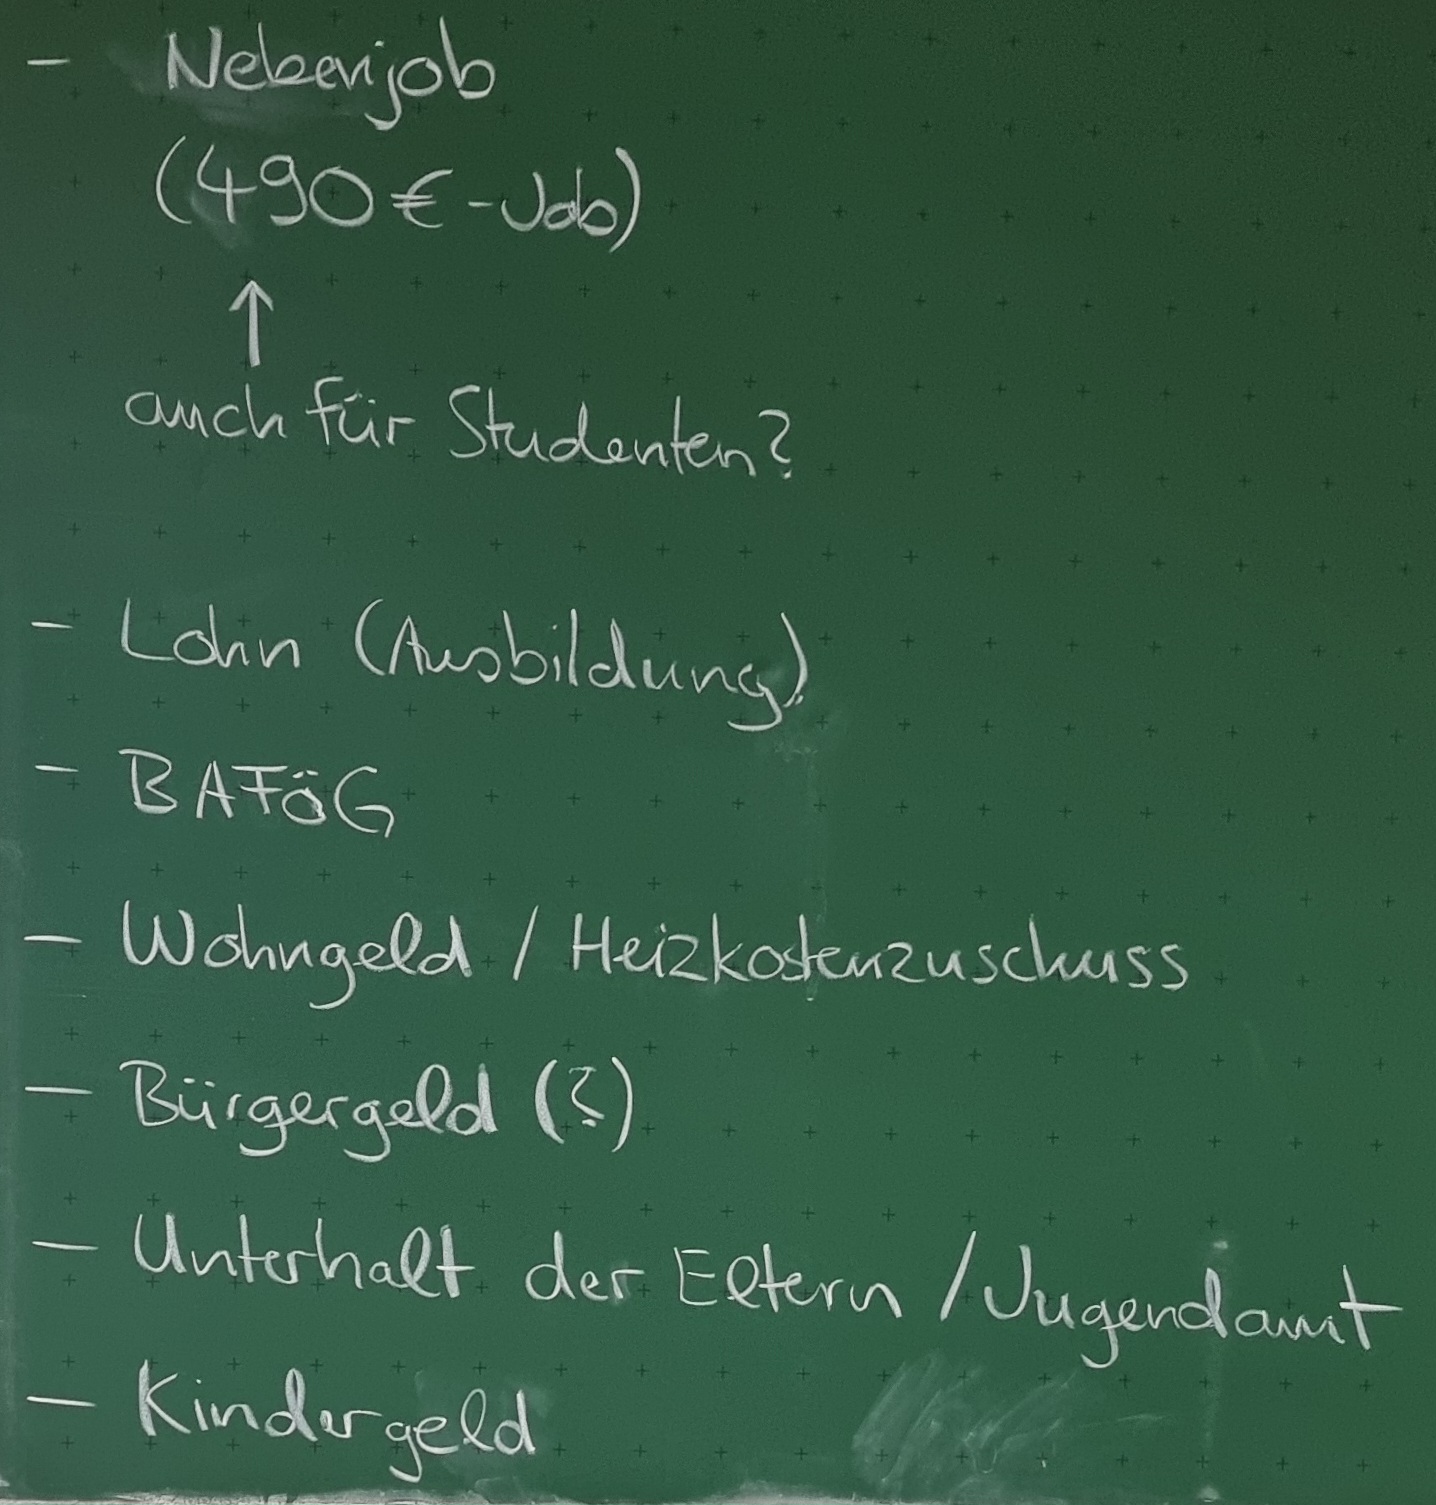 - Nebenjob
(490€-Job)
↑
auch für Studenten?
- Lohn (Ausbildung)
- BAFöG
- Wohngeld / Heizkostenzuschuss
- Bürgergeld (?)
- Unterhalt der Eltern / Jugendamt
- Kindergeld